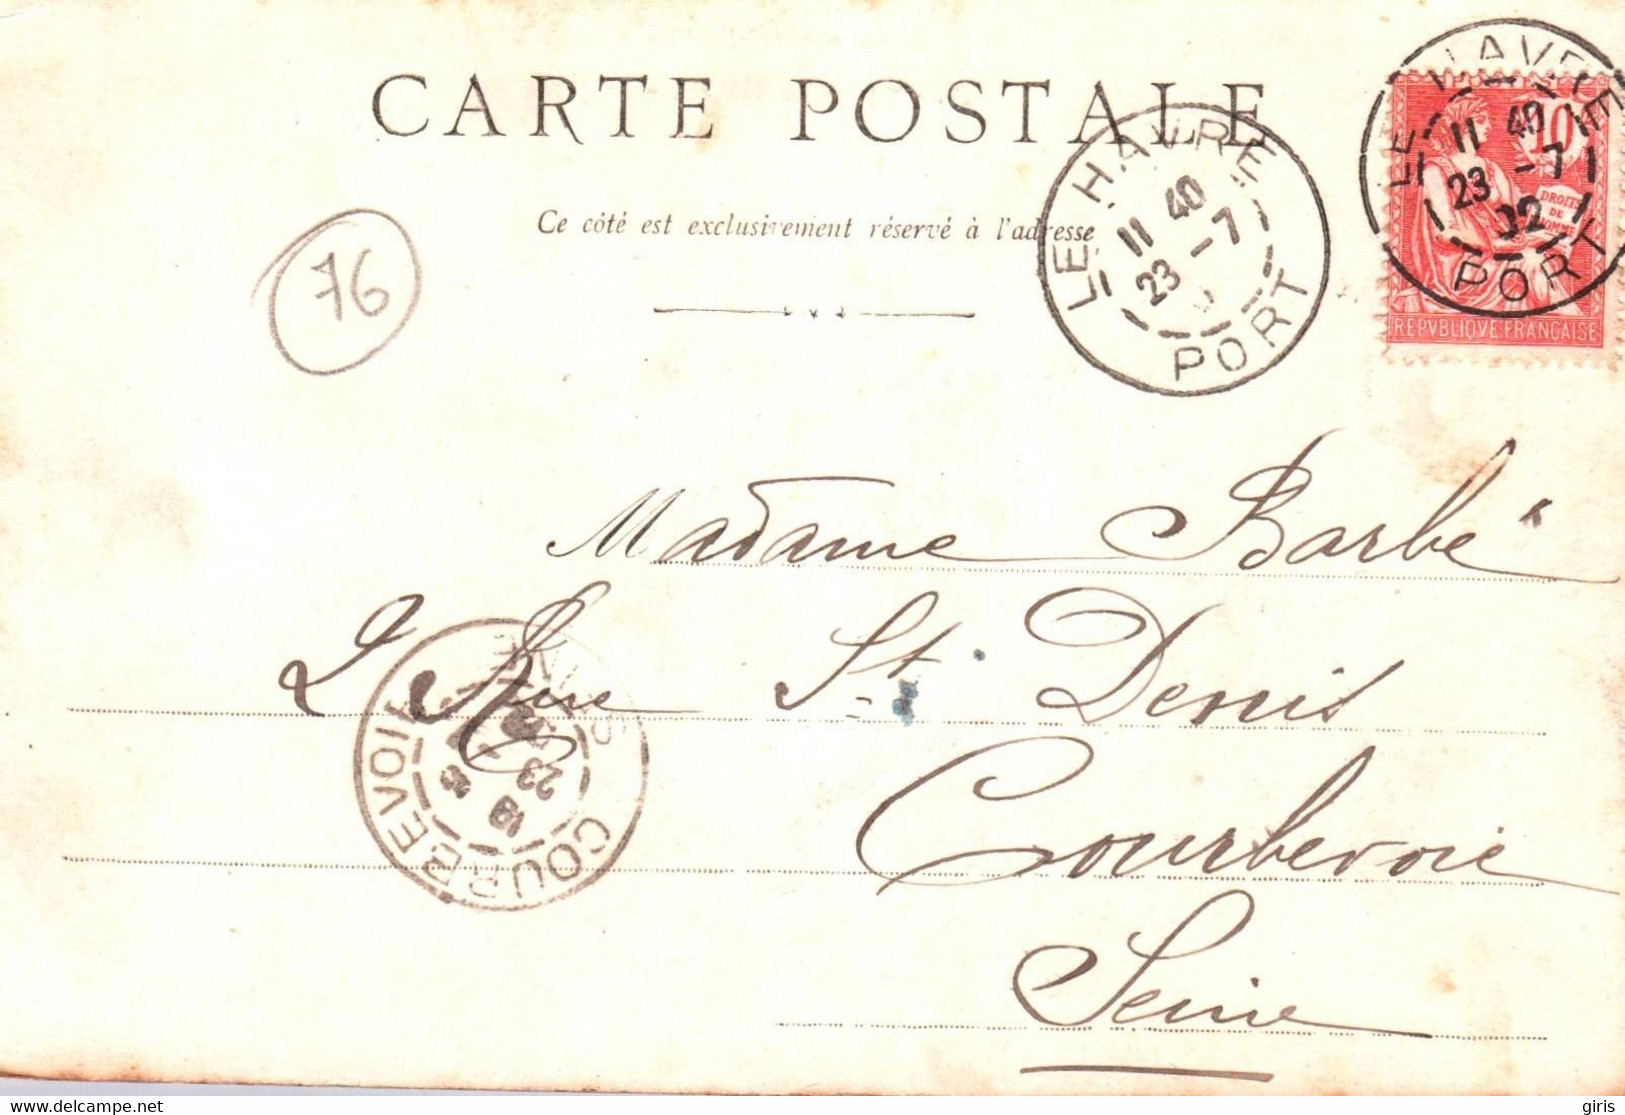 CARTE POSTALE
Ce côté est exclusivement réservé à l'adresse
LE HAVRE
11 40
23 -7
PORT
LE HAVRE
11 40
23 -7
02
PORT
10
DROITS
DE
L'HOMME
REPVBLIQVE FRANÇAISE
76
Madame Barbé
2 Rue St. Denis
Courbevoie
Seine
COURBEVOIE
23
SEINE
www.delcampe.net
giris